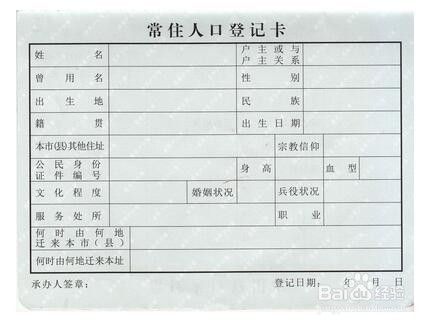 常住人口登记卡
姓名 户主或与户主关系
曾用名 性别
出生地 民族
籍贯 出生日期
本市(县)其他住址 宗教信仰
公民身份证件编号 身高 血型
文化程度 婚姻状况 兵役状况
服务处所 职业
何时由何地迁来本市(县)
何时由何地迁来本址
承办人签章: 登记日期: 年 月 日
Baidu经验